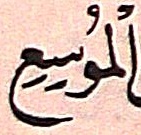 الْمُوسيع